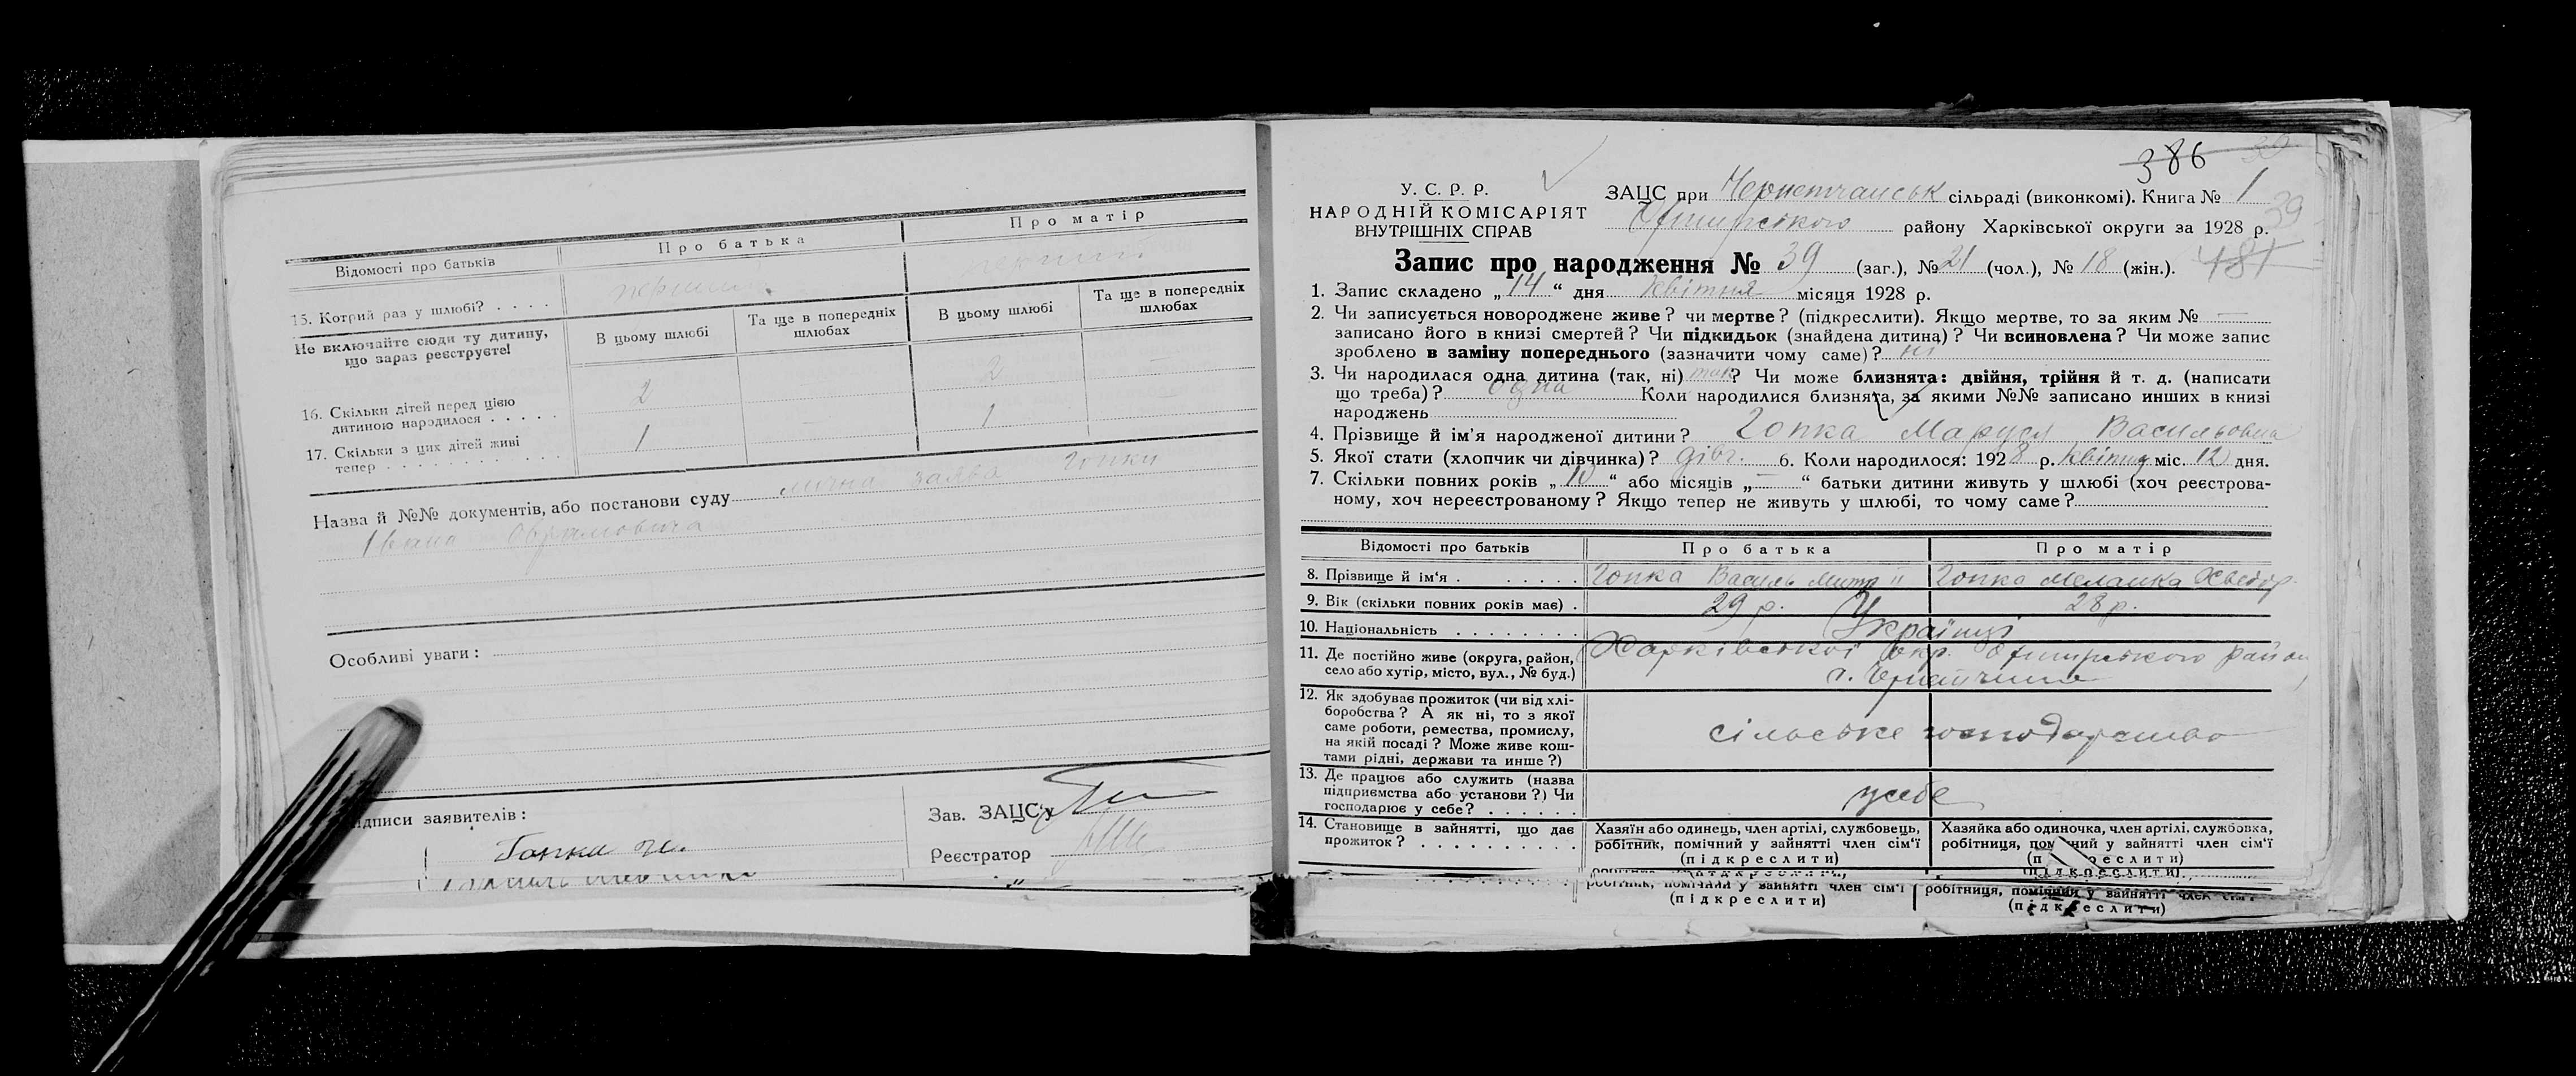 Відомості про батьків
Про батька
Про матір
15. Котрий раз у шлюбі? . . . .
перший
Не включайте сюди ту дитину, що зараз реєструєте!
В цьому шлюбі
Та ще в попередніх шлюбах
В цьому шлюбі
Та ще в попередніх шлюбах
16. Скільки дітей перед цією дитиною народилося . . . . .
2
2
—
17. Скільки з цих дітей живі тепер . . . . . . . . . . . .
1
—
1
Назва й №№ документів, або постанови суду лична заява Гопки
Івана
Особливі уваги:
ідписи заявителів:
Гопка
Зав. ЗАЦС'у
Реєстратор
386
39
У. С. Р. Р.
НАРОДНІЙ КОМІСАРІЯТ
ВНУТРІШНІХ СПРАВ
ЗАЦС при Чернетчанськ сільраді (виконкомі). Книга № 1
Охтирського району Харківської округи за 1928 р.
Запис про народження № 39 (заг.), № 21 (чол.), № 18 (жін.).
481
1. Запис складено „14“ дня квітня місяця 1928 р.
2. Чи записується новороджене живе? чи мертве? (підкреслити). Якщо мертве, то за яким № —
записано його в книзі смертей? Чи підкидьок (знайдена дитина)? Чи всиновлена? Чи може запис
зроблено в заміну попереднього (зазначити чому саме)? ні
3. Чи народилася одна дитина (так, ні) так? Чи може близнята: двійня, трійня й т. д. (написати
що треба)? одна Коли народилися близнята, за якими №№ записано инших в книзі
народжень
4. Прізвище й ім'я народженої дитини? Гопка Маруся Васильовна
5. Якої статі (хлопчик чи дівчинка)? дівч. 6. Коли народилося: 1928 р. квітня міс. 12 дня.
7. Скільки повних років „10“ або місяців „—“ батьки дитини живуть у шлюбі (хоч реєстрова-
ному, хоч нереєстрованому? Якщо тепер не живуть у шлюбі, то чому саме?
Відомості про батьків
Про батька
Про матір
8. Прізвище й ім'я . . . . . .
Гопка Василь
Гопка Меланка
9. Вік (скільки повних років має) .
29 р.
28 р.
10. Національність . . . . . . . .
Українці
11. Де постійно живе (округа, район,
село або хутір, місто, вул., № буд.)
Харківської окр. Охтирського район
с. Чернетчина
12. Як здобуває прожиток (чи від хлі-
боробства? А як ні, то з якої
саме роботи, ремества, промислу,
на якій посаді? Може живе кош-
тами рідні, держави та инше?)
сільське господарство
13. Де працює або служить (назва
підприємства або установи?) Чи
господарює у себе? . . . . . .
у себе
14. Становище в зайнятті, що дає
прожиток? . . . . . . . . . .
Хазяїн або одинець, член артілі, службовець,
робітник, помічний у зайнятті член сім'ї
(підкреслити)
Хазяйка або одиночка, член артілі, службовка,
робітниця, помічний у зайнятті член сім'ї
(підкреслити)
робітник, помічний у зайнятті член сім'ї
(підкреслити)
робітниця, помічний у зайнятті член сім'ї
(підкреслити)